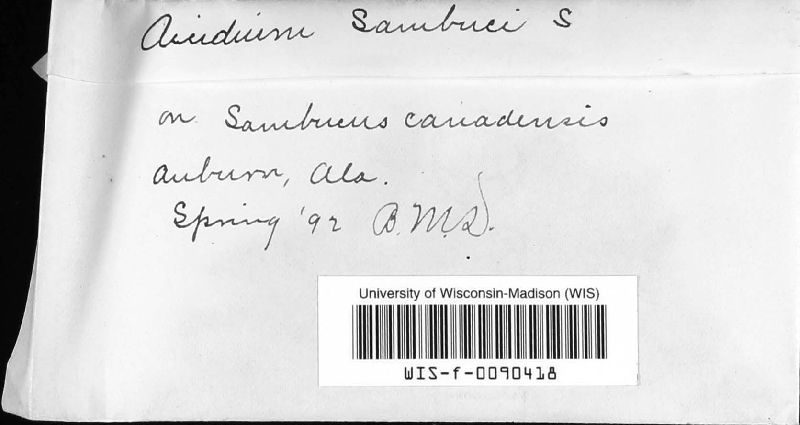 Aecidium Sambuci S
on Sambucus canadensis
Auburn, Ala.
Spring '92 B.M.D.
University of Wisconsin-Madison (WIS)
WIS-f-0090418